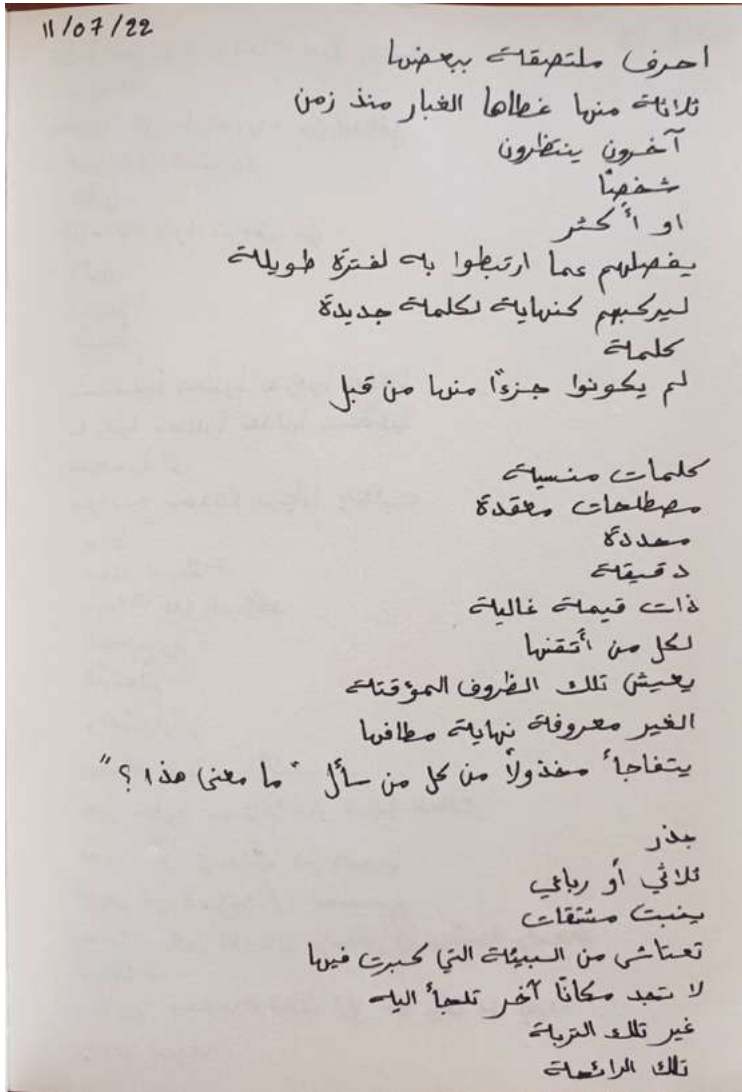 11/07/22
احرف ملتصقة ببعضها
ثلاثة منها غطاها الغبار منذ زمن
آخرون ينتظرون
شخصًا
او أكثر
يفصلهم عما ارتبطوا به لفترة طويلة
ليركبهم كنهاية لكلمة جديدة
كلمة
لم يكونوا جزءًا منها من قبل
كلمات منسية
مصطلحات معقدة
محددة
دقيقة
ذات قيمة غالية
لكل من أتقنها
يعيش تلك الظروف المؤقتة
الغير معروفة نهاية مطافها
يتفاجأ مخذولاً من كل من سأل "ما معنى هذا؟"
جذر
ثلاثي أو رباعي
ينبت مشتقات
تعتاش من البيئة التي كبرت فيها
لا تجد مكانًا آخر تلجأ اليه
غير تلك التربة
تلك الرائحة